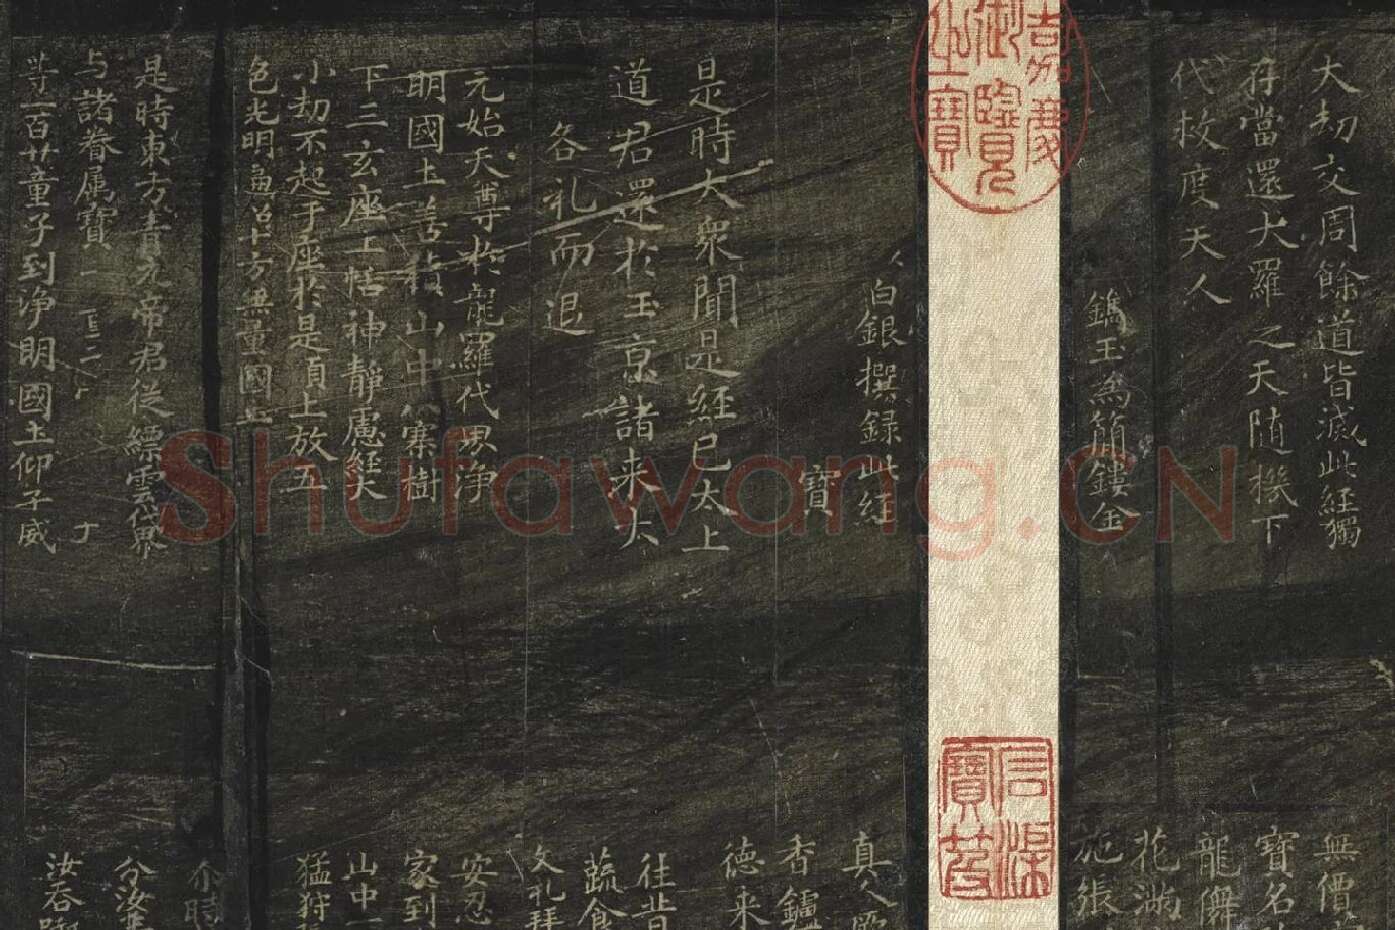 大劫交周餘道皆滅此經獨
存當還大羅之天隨機下
代救度天人
鐫玉為簡鏤金
嘉慶御覽之寶
白銀撰録此經
寶
是時大眾聞是經已太上
道君還於玉京諸来大
各礼而退
元始天尊於龍羅代界浄
明國土善積山中騫樹
下三玄座上恬神靜慮經
小劫不起于座於是頂上放五
色光明遍照十方無量國土
是時東方青元帝君從縹雲代界
与諸眷属寶
等一百廿童子到浄明國土仰予威
無價
寶名
龍
花滿
施張
石渠
寶笈
真人
香鑪
德来
往昔
蔬食
文礼拜
安忍
家到
山中
猛狩
尒時
分汝
汝吞
Shufawang.CN